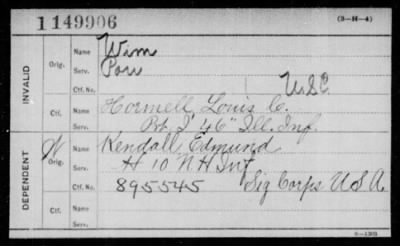 1149906
(3-H-4)
INVALID
DEPENDENT
Orig.
Name
Serv.
Ctf. No.
Wim
Pow
U.S.C.
Ctf.
Name
Serv.
Hormell Louis C.
Pvt. I 46" Ill. Inf.
W
Orig.
Name
Serv.
Ctf. No.
Kendall Edmund
H 10 "N H Inf
895545 Sig Corps U S A.
Ctf.
Name
Serv.